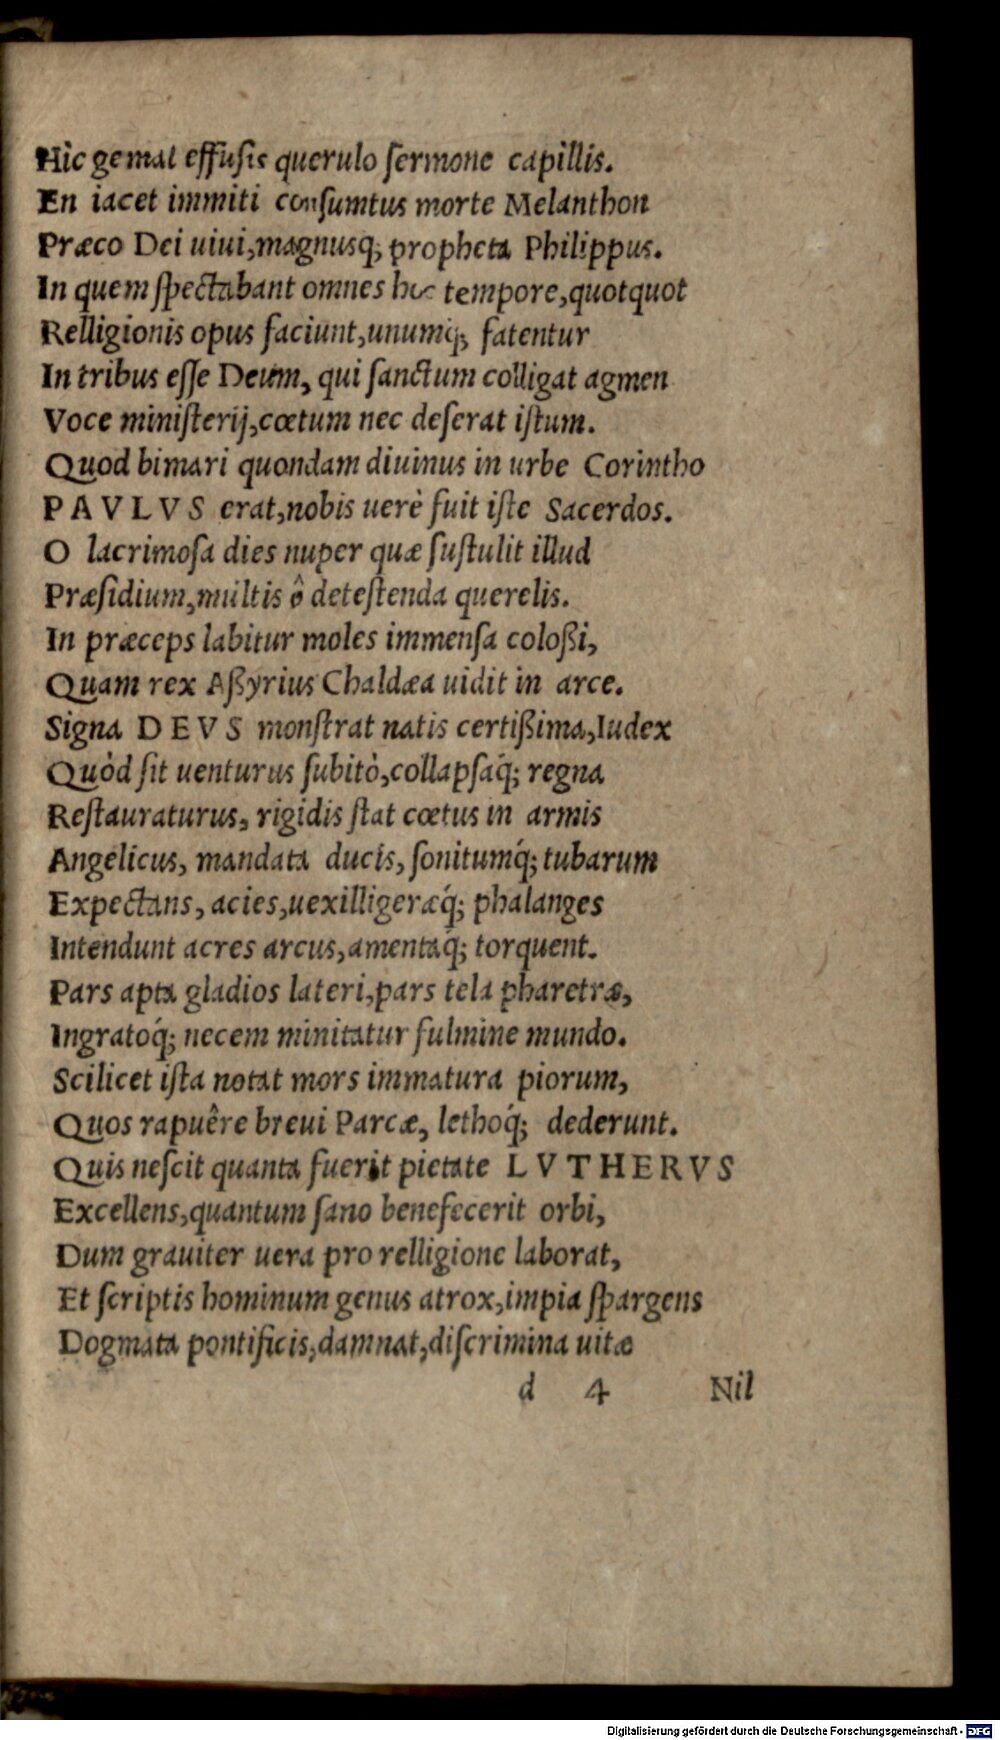 Hìc gemat effusis querulo ſermone capillis.
En iacet immiti conſumtus morte Melanthon
Præco Dei uiui, magnusq́; propheta Philippus.
In quem ſpectabant omnes hoc tempore, quotquot
Relligionis opus faciunt, unumq́; fatentur
In tribus eſſe Deum, qui ſanctum colligat agmen
Voce miniſterij, cœtum nec deſerat iſtum.
Quod bimari quondam diuinus in urbe Corintho
PAVLVS erat, nobis uerè fuit iſte Sacerdos.
O lacrimoſa dies nuper quæ ſuſtulit illud
Præſidium, multis ô deteſtenda querelis.
In præceps labitur moles immenſa coloßi,
Quam rex Aßyrius Chaldæa uidit in arce.
Signa DEVS monſtrat natis certißima, Iudex
Quòd ſit uenturus ſubitò, collapſaq́; regna
Reſtauraturus, rigidis ſtat cœtus in armis
Angelicus, mandata ducis, ſonitumq́; tubarum
Expectans, acies, uexilligeræq́; phalanges
Intendunt acres arcus, amentaq́; torquent.
Pars apta gladios lateri, pars tela pharetræ,
Ingratoq́; necem minitatur fulmine mundo.
Scilicet iſta notat mors immatura piorum,
Quos rapuêre breui Parcæ, lethoq́; dederunt.
Quis neſcit quanta fuerit pietate LVTHERVS
Excellens, quantum ſano benefecerit orbi,
Dum grauiter uera pro relligione laborat,
Et ſcriptis hominum genus atrox, impia ſpargens
Dogmata pontificis, damnat, diſcrimina uitæ
d 4 Nil
Digitalisierung gefördert durch die Deutsche Forschungsgemeinschaft - DFG